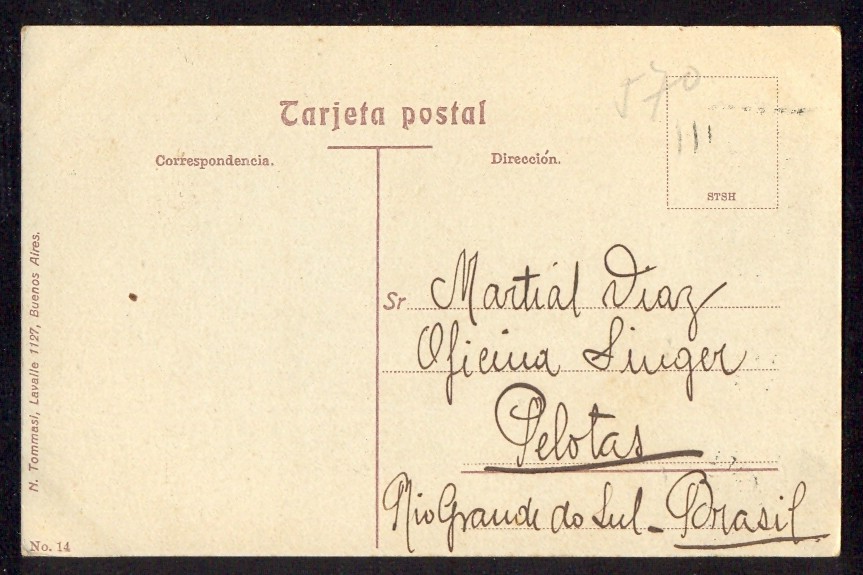 570
Tarjeta postal
Correspondencia.
Dirección.
STSH
Sr Martial Diaz
Oficina Singer
Pelotas
Rio Grande do Sul - Brasil
N. Tommasi, Lavalle 1127, Buenos Aires.
No. 14